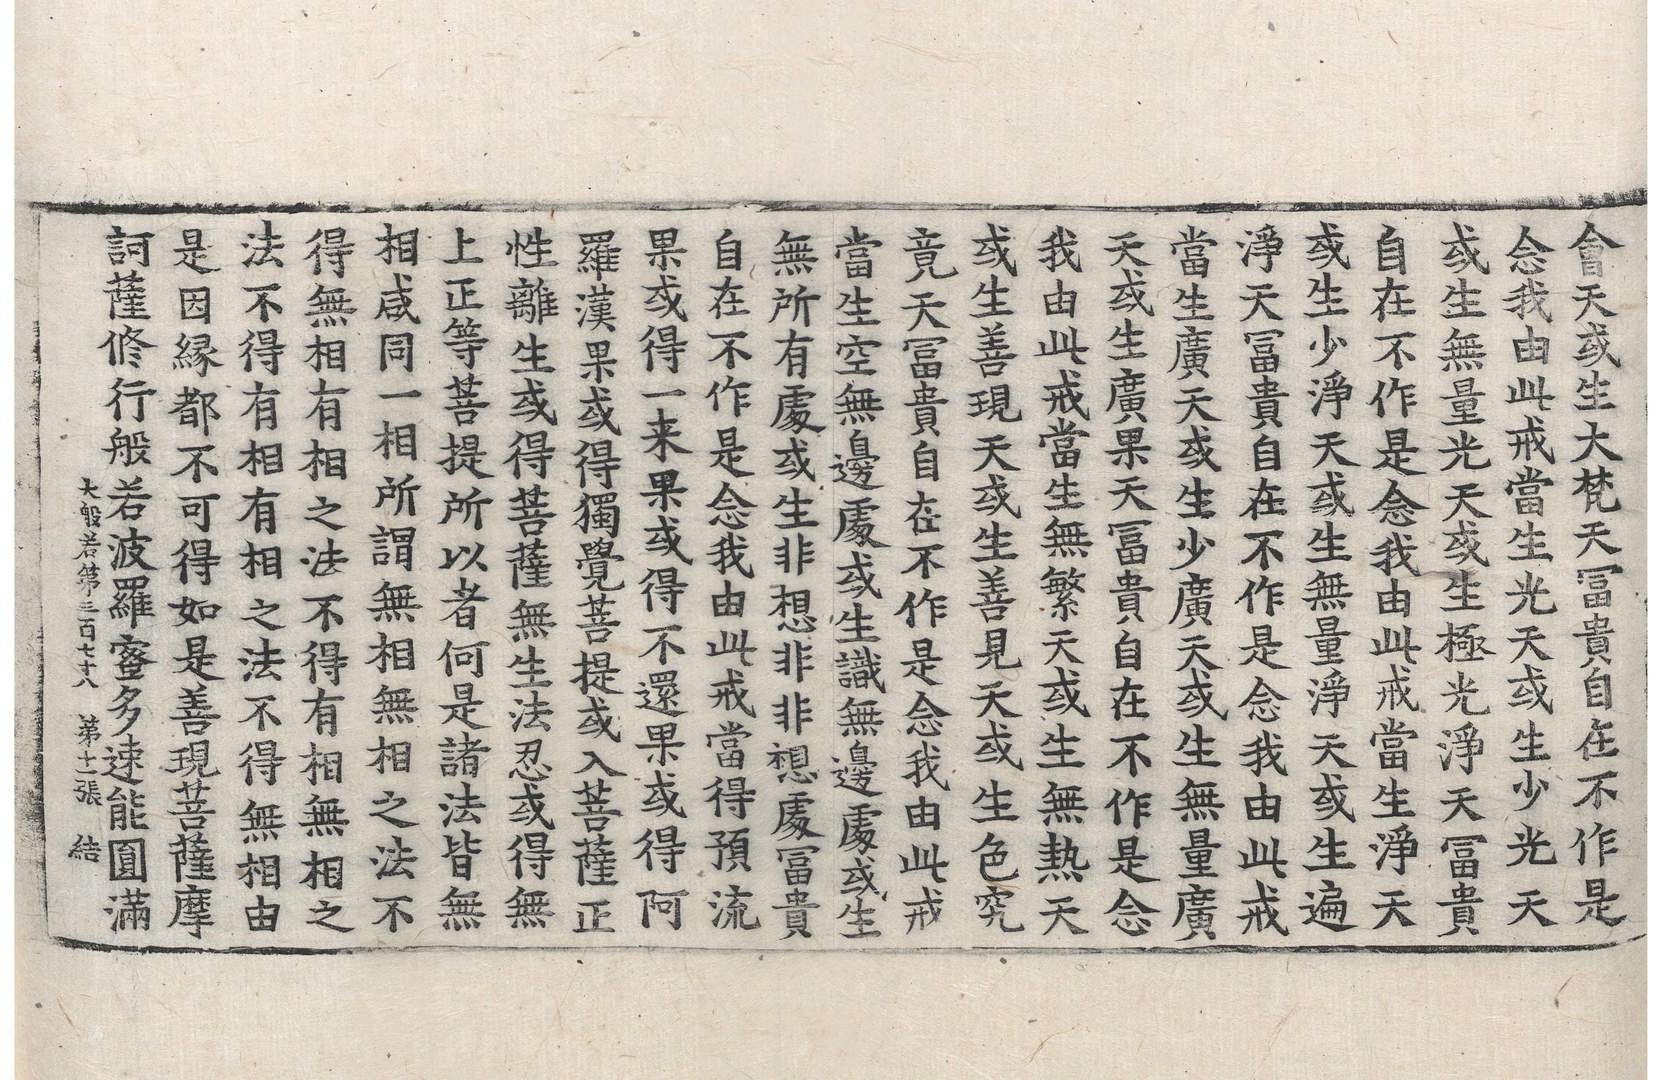 會天或生大梵天冨貴自在不作是
念我由此戒當生光天或生少光天
或生無量光天或生極光淨天冨貴
自在不作是念我由此戒當生淨天
或生少淨天或生無量淨天或生遍
淨天冨貴自在不作是念我由此戒
當生廣天或生少廣天或生無量廣
天或生廣果天冨貴自在不作是念
我由此戒當生無繁天或生無熱天
或生善現天或生善見天或生色究
竟天冨貴自在不作是念我由此戒
當生空無邊處或生識無邊處或生
無所有處或生非想非非想處冨貴
自在不作是念我由此戒當得預流
果或得一来果或得不還果或得阿
羅漢果或得獨覺菩提或入菩薩正
性離生或得菩薩無生法忍或得無
上正等菩提所以者何是諸法皆無
相咸同一相所謂無相無相之法不
得無相有相之法不得有相無相之
法不得有相有相之法不得無相由
是因縁都不可得如是善現菩薩摩
訶薩修行般若波羅蜜多速能圓滿
大般若第三百七十八　第十一張　結